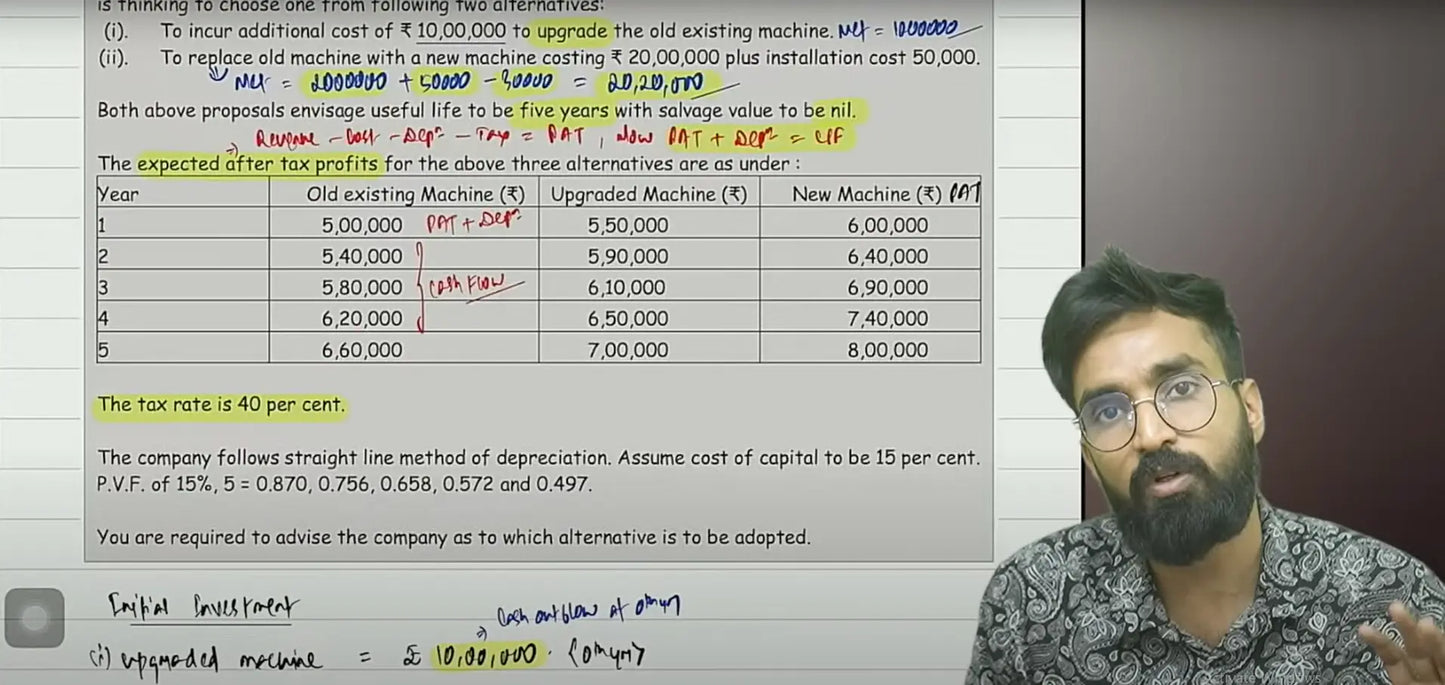 is thinking to choose one from following two alternatives:
(i). To incur additional cost of ₹ 10,00,000 to upgrade the old existing machine. = 1000000
(ii). To replace old machine with a new machine costing ₹ 20,00,000 plus installation cost 50,000.
= 2000000 + 50000 - 30000 = 20,20,000
Both above proposals envisage useful life to be five years with salvage value to be nil.
⇒ Revenue - Cost - Depn - Tax = PAT, Now PAT + Depn = CIF
The expected after tax profits for the above three alternatives are as under :
Year Old existing Machine (₹) Upgraded Machine (₹) New Machine (₹) PAT
1 5,00,000 PAT + Depn 5,50,000 6,00,000
2 5,40,000 5,90,000 6,40,000
3 5,80,000 Cash Flow 6,10,000 6,90,000
4 6,20,000 6,50,000 7,40,000
5 6,60,000 7,00,000 8,00,000
The tax rate is 40 per cent.
The company follows straight line method of depreciation. Assume cost of capital to be 15 per cent.
P.V.F. of 15%, 5 = 0.870, 0.756, 0.658, 0.572 and 0.497.
You are required to advise the company as to which alternative is to be adopted.
Initial Investment
⇒ Cash outflow at 0th yr
(i) upgraded machine = 10,00,000. (0th yr)